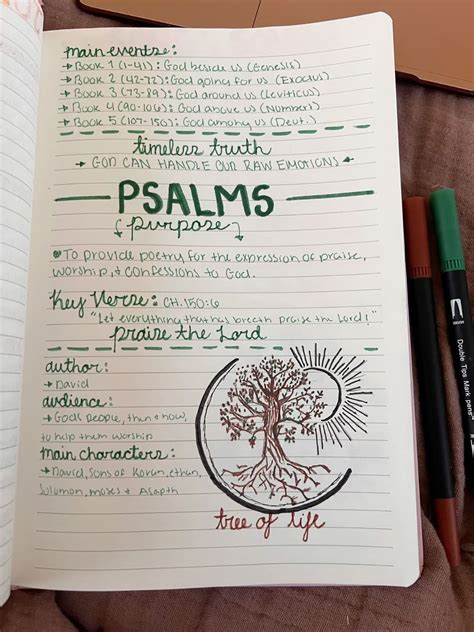 main events:
→ Book 1 (1-41): God beside us (Genesis)
→ Book 2 (42-72): God going for us (Exodus)
→ Book 3 (73-89): God around us (Leviticus)
→ Book 4 (90-106): God above us (Numbers)
→ Book 5 (107-150): God among us (Deut.)
timeless truth
→ GOD CAN HANDLE OUR RAW EMOTIONS ←
PSALMS
{purpose}
♥ To provide poetry for the expression of praise,
worship, + confessions to God.
Key Verse: CH. 150:6
"Let everything that has breath praise the Lord!"
praise the Lord
author:
→ David
audience:
→ God's people, then + now,
to help them worship
main characters:
→ David, Sons of Korah, ethan,
Solomon, moses + Asaph
tree of life
Double Tips Mark pens